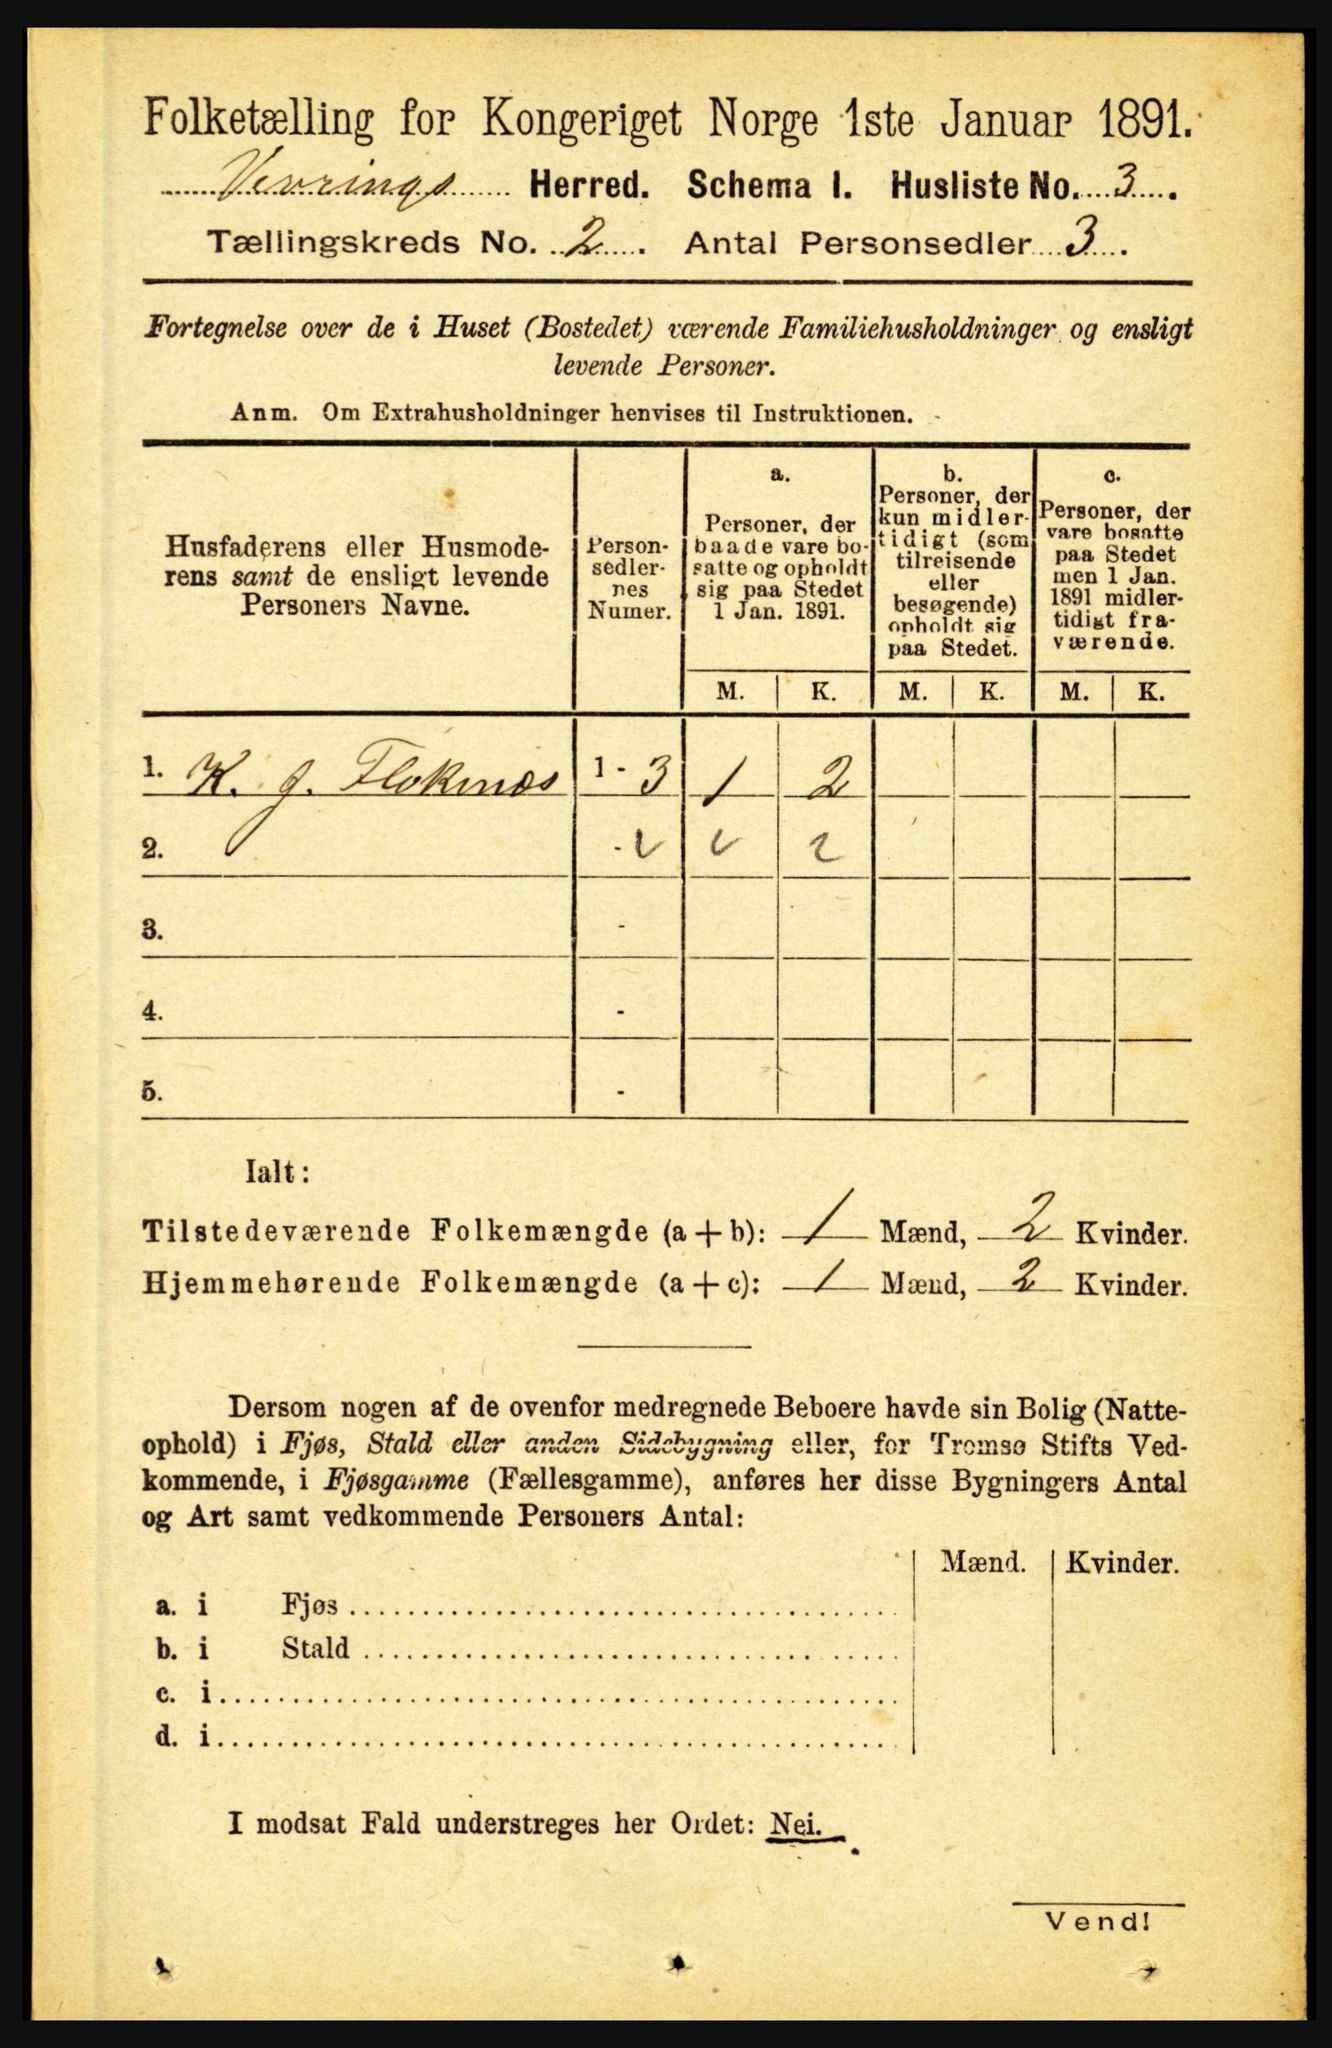 Folketælling for Kongeriget Norge 1ste Januar 1891.
Vevrings Herred. Schema I. Husliste No. 3.
Tællingskreds No. 2. Antal Personsedler 3.
Fortegnelse over de i Huset (Bostedet) værende Familiehusholdninger og ensligt
levende Personer.
Anm. Om Extrahusholdninger henvises til Instruktionen.
Husfaderens eller Husmode-
rens samt de ensligt levende
Personers Navne.
Person-
sedler-
nes
Numer.
a.
Personer, der
baade vare bo-
satte og opholdt
sig paa Stedet
1 Jan. 1891.
b.
Personer, der
kun midler-
tidigt (som
tilreisende
eller
besøgende)
opholdt sig
paa Stedet.
c.
Personer, der
vare bosatte
paa Stedet
men 1 Jan.
1891 midler-
tidigt fra-
værende.
M. K. M. K. M. K.
1. K. J. Flokenæs 1 - 3 1 2
2. -
3. -
4. -
5. -
Ialt:
Tilstedeværende Folkemængde (a + b): 1 Mænd, 2 Kvinder.
Hjemmehørende Folkemængde (a + c): 1 Mænd, 2 Kvinder.
Dersom nogen af de ovenfor medregnede Beboere havde sin Bolig (Natte-
ophold) i Fjøs, Stald eller anden Sidebygning eller, for Tromsø Stifts Ved-
kommende, i Fjøsgamme (Fællesgamme), anføres her disse Bygningers Antal
og Art samt vedkommende Personers Antal:
Mænd. Kvinder.
a. i Fjøs
b. i Stald
c. i
d. i
I modsat Fald understreges her Ordet: Nei.
Vend!